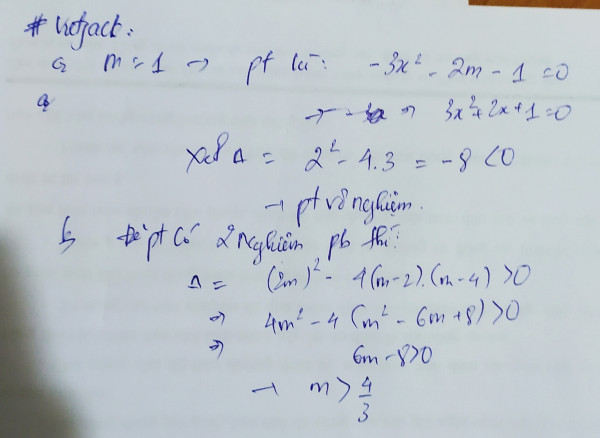 # Vietjack:
a, m = 1 → pt là: -3x² - 2m - 1 = 0
a, → ⇒ 3x² + 2x + 1 = 0
Xét Δ = 2² - 4.3 = -8 < 0
→ pt vô nghiệm.
b, Để pt có 2 nghiệm pb thì:
Δ = (2m)² - 4(m-2).(m-4) > 0
⇒ 4m² - 4(m² - 6m + 8) > 0
⇒ 6m - 8 > 0
→ m > 4/3